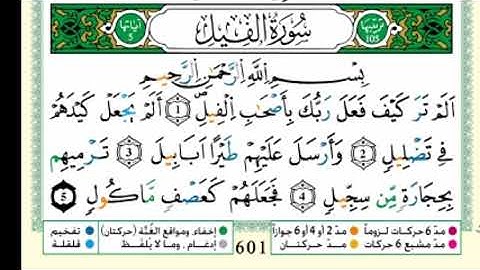 ترتيبها 105 سُورَةُ الفِيلِ آياتها 5
بِسْمِ اللَّهِ الرَّحْمَٰنِ الرَّحِيمِ
أَلَمْ تَرَ كَيْفَ فَعَلَ رَبُّكَ بِأَصْحَابِ الْفِيلِ 1 أَلَمْ يَجْعَلْ كَيْدَهُمْ
فِي تَضْلِيلٍ 2 وَأَرْسَلَ عَلَيْهِمْ طَيْرًا أَبَابِيلَ 3 تَرْمِيهِم
بِحِجَارَةٍ مِّن سِجِّيلٍ 4 فَجَعَلَهُمْ كَعَصْفٍ مَّأْكُولٍ 5
مدّ 6 حركات لزوماً مدّ 2 أو 4 أو 6 جوازاً إخفاء، ومواقع الغُنَّة (حركتان) تفخيم
مدّ مشبع 6 حركات مدّ حركتان 601 إدغام، وما لا يُلفَظ قلقلة